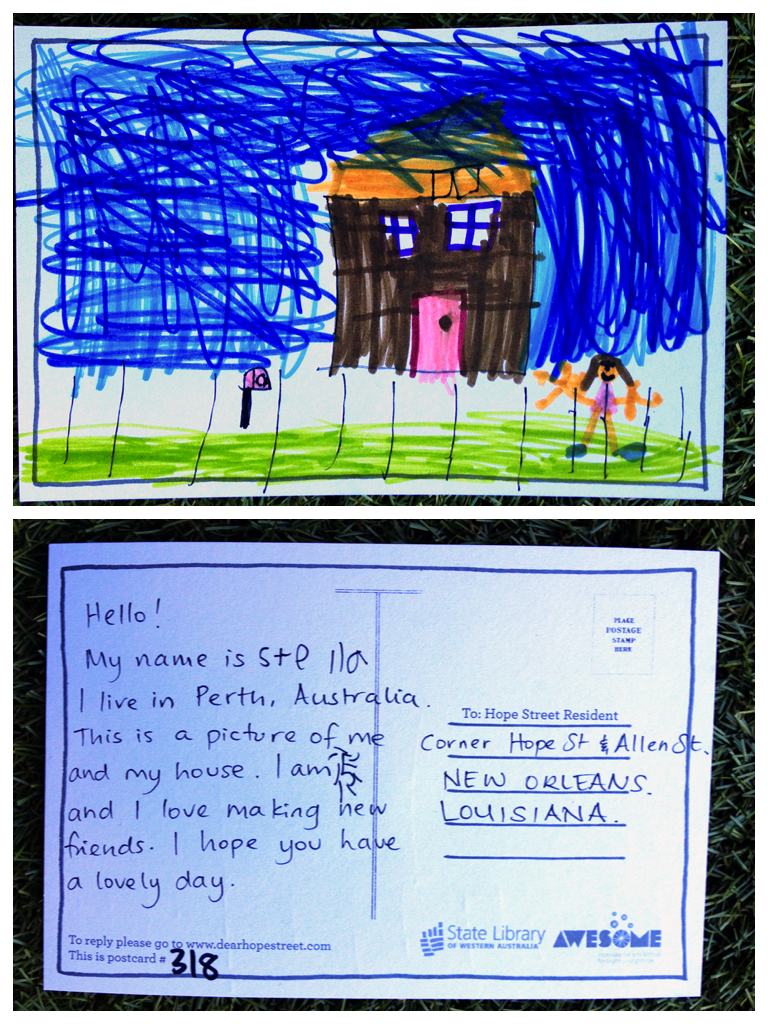 Hello!
My name is Ste lla
I live in Perth, Australia.
This is a picture of me
and my house. I am 5
and I love making new
friends. I hope you have
a lovely day.
To reply please go to www.dearhopestreet.com
This is postcard # 318
PLACE
POSTAGE
STAMP
HERE
To: Hope Street Resident
Corner Hope St & Allen St.
NEW ORLEANS.
LOUISIANA.
State Library
OF WESTERN AUSTRALIA
AWESOME